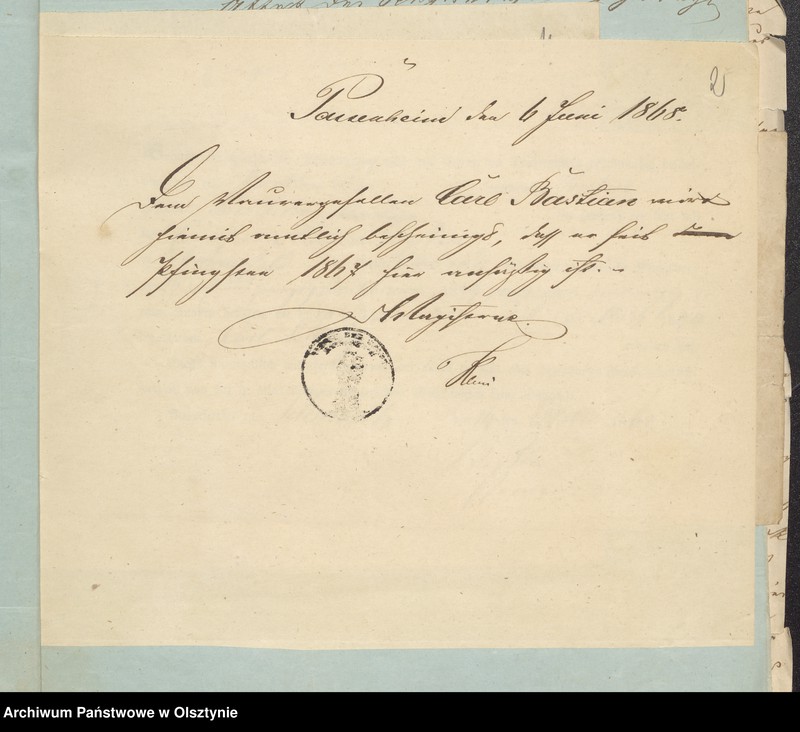 2
Passenheim den 6 Juni 1868.
Dem Maurergesellen Carl Bastian wird
hiemit amtlich bescheinigt, daß er seit
Pfingsten 1867 hier ansäßig ist.
Magistrat.
Archiwum Państwowe w Olsztynie